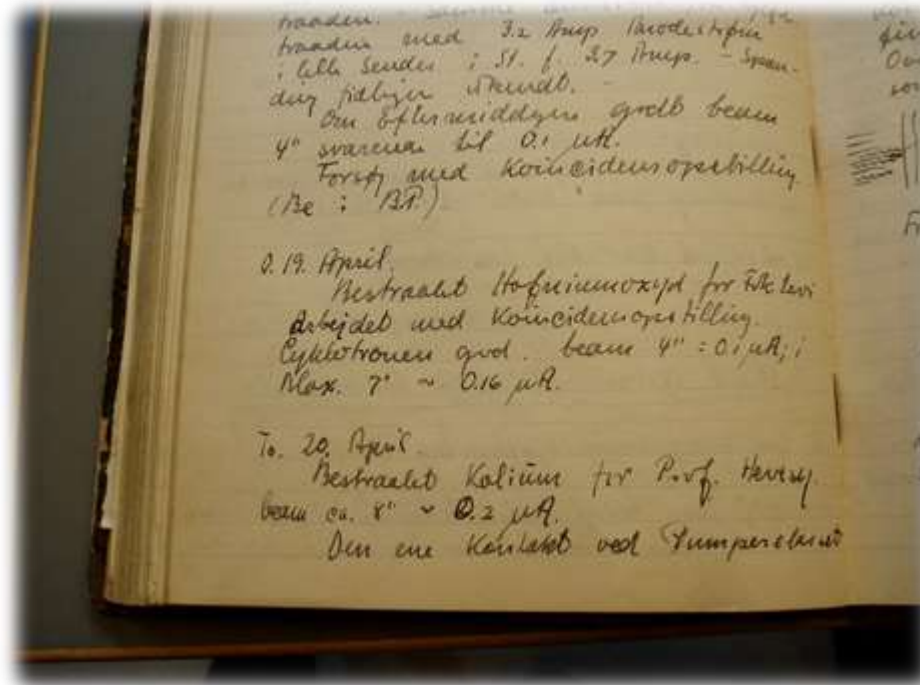 traaden.
traaden med 3.2 Amp
i lille Sender i St. f. 3.7 Amp. - Spæn-
ding
Om Eftermiddagen godt beam
4" svarende til 0.1 µA.
Forsøg med Koincidensopstilling
(Be i BF.)
O. 19. April.
Bestraalet Hafniumoxyd for Frk Levi
Arbejdet med Koincidensopstilling.
Cyklotronen god. beam 4" = 0.1 µA; i
Max. 7" ~ 0.16 µA.
To. 20. April.
Bestraalet Kalium for Prof. Hevesy.
beam ca. 8" ~ 0.2 µA.
Den ene Kontakt ved